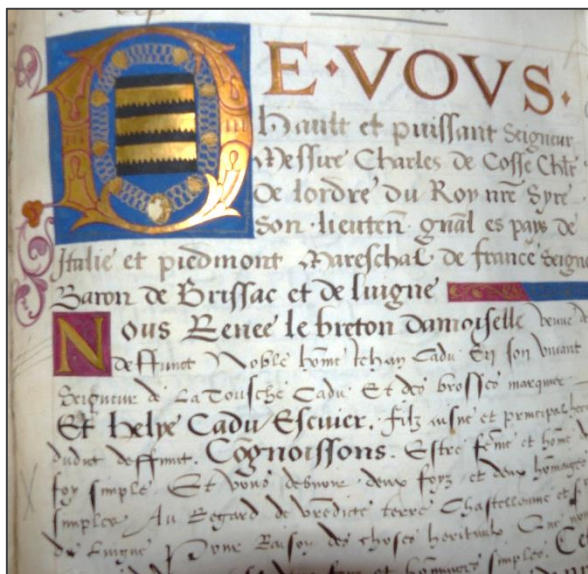 DE·VOVS·
hault et puissant Seigneur
Messire Charles de Cosse Chlr
de lordre du Roy nre Syre
son lieuten gnal es pays de
Italie et piedmont Mareschal de france Seigne
Baron de Brissac et de luigne
Nous Renee le breton damoyselle
deffunct Noble home Jehan Cadu En son vivant
Seigneur de La Tousche Cadu Et des brosses
Et helye Cadu Escuier. filz aisne et principal
dudict deffunct. Cognoissons. Estre feme et home
foy simple Et vous debvoir deux foyz et deux homages
simples Au Regard de vredicte terre Chastellenie et
de Luigne Pour Raison des choses heritaulx
simples.